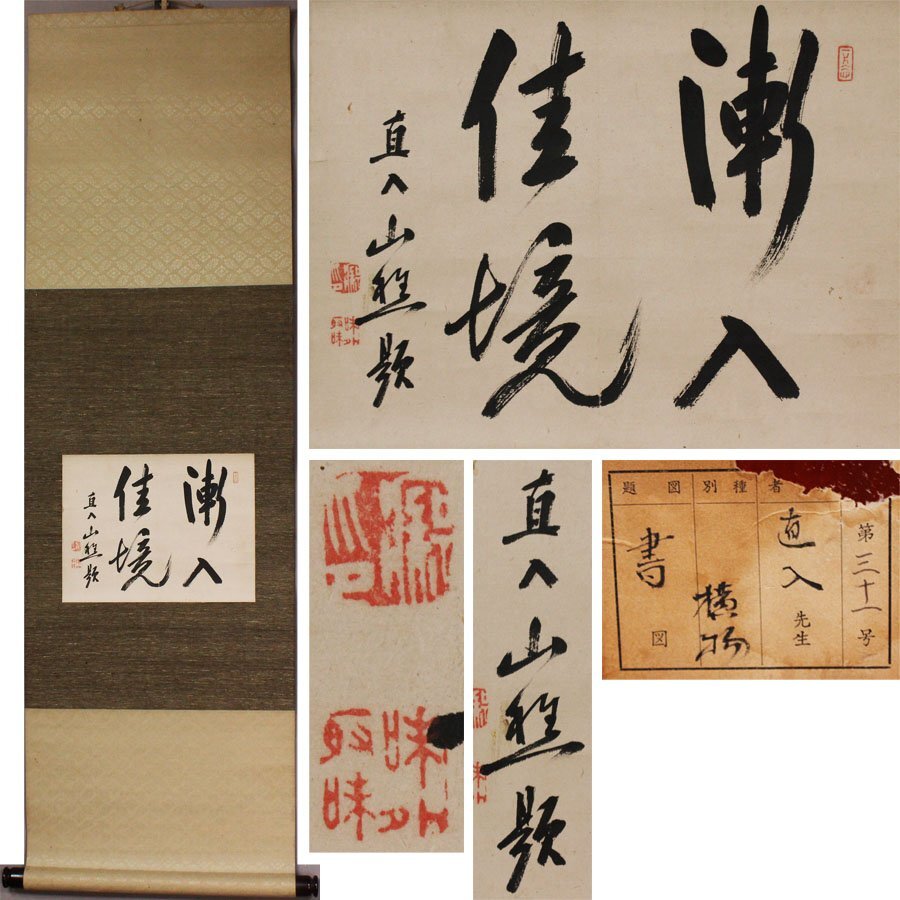 漸入
佳境
直入山樵題
漸入
佳境
直入山樵題
直入山樵題
第三十一号
者
直入先生
種別
横物
図題
書図